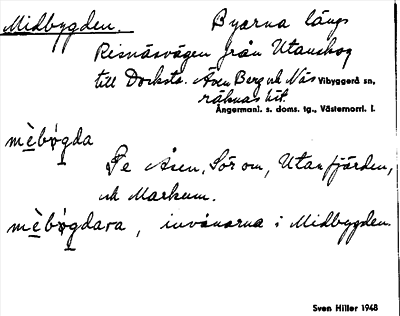 Midbygden. Byarna längs
Risnäsvägen från Utanskog
till Docksta. Även Berg och Näs Vibyggerå sn,
räknas hit.
Ångermanl. s. doms. tg., Västernorrl. l.
mèbýgda
Se Åsen, Sör om, Utanfjärden,
och Markum.
mèbýgdara, invånarna i Midbygden.
Sven Hiller 1948